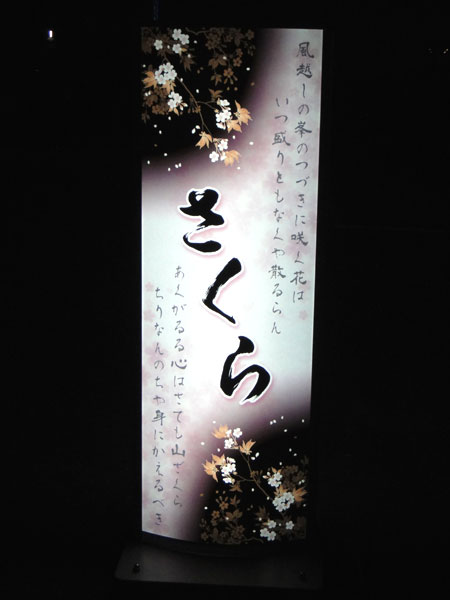 風越しの峯のつづきに咲く花は
いつ盛りともなくや散るらん
さくら
あくがるる心はさても山ざくら
ちりなんのちや身にかえるべき